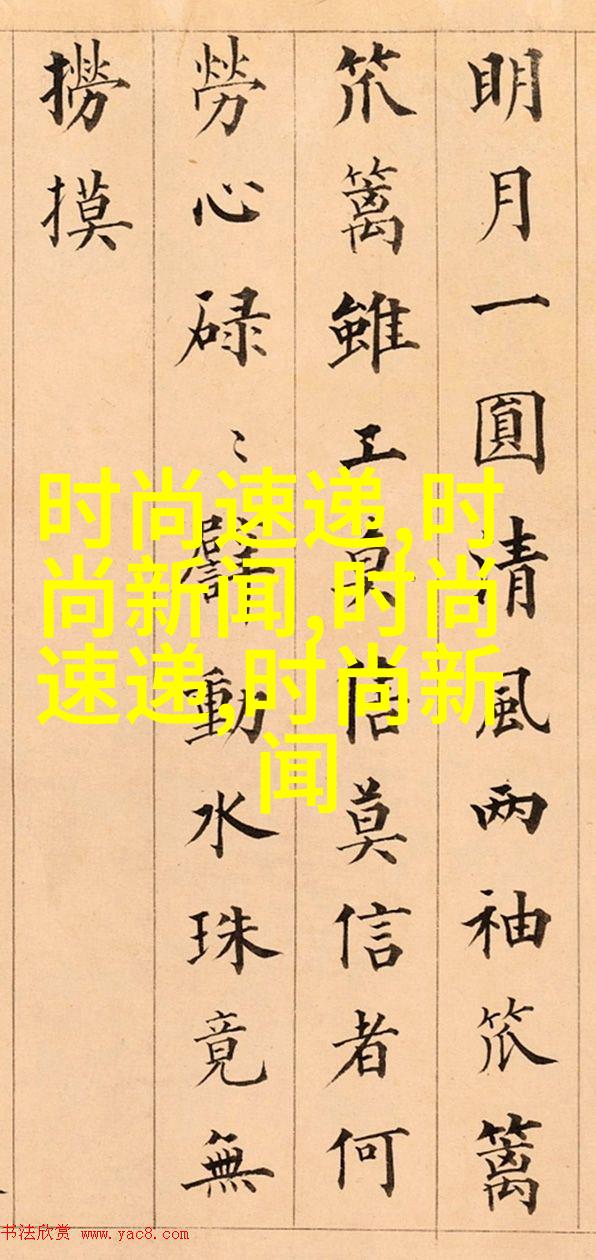 明月一圓清風两袖笊篱
笊篱雖工莫信莫信者何
勞心碌〻動水珠竟無
撈摸
时尚速递,时
尚新闻,时尚
速递,时尚新
闻
书法欣赏 www.yac8.com